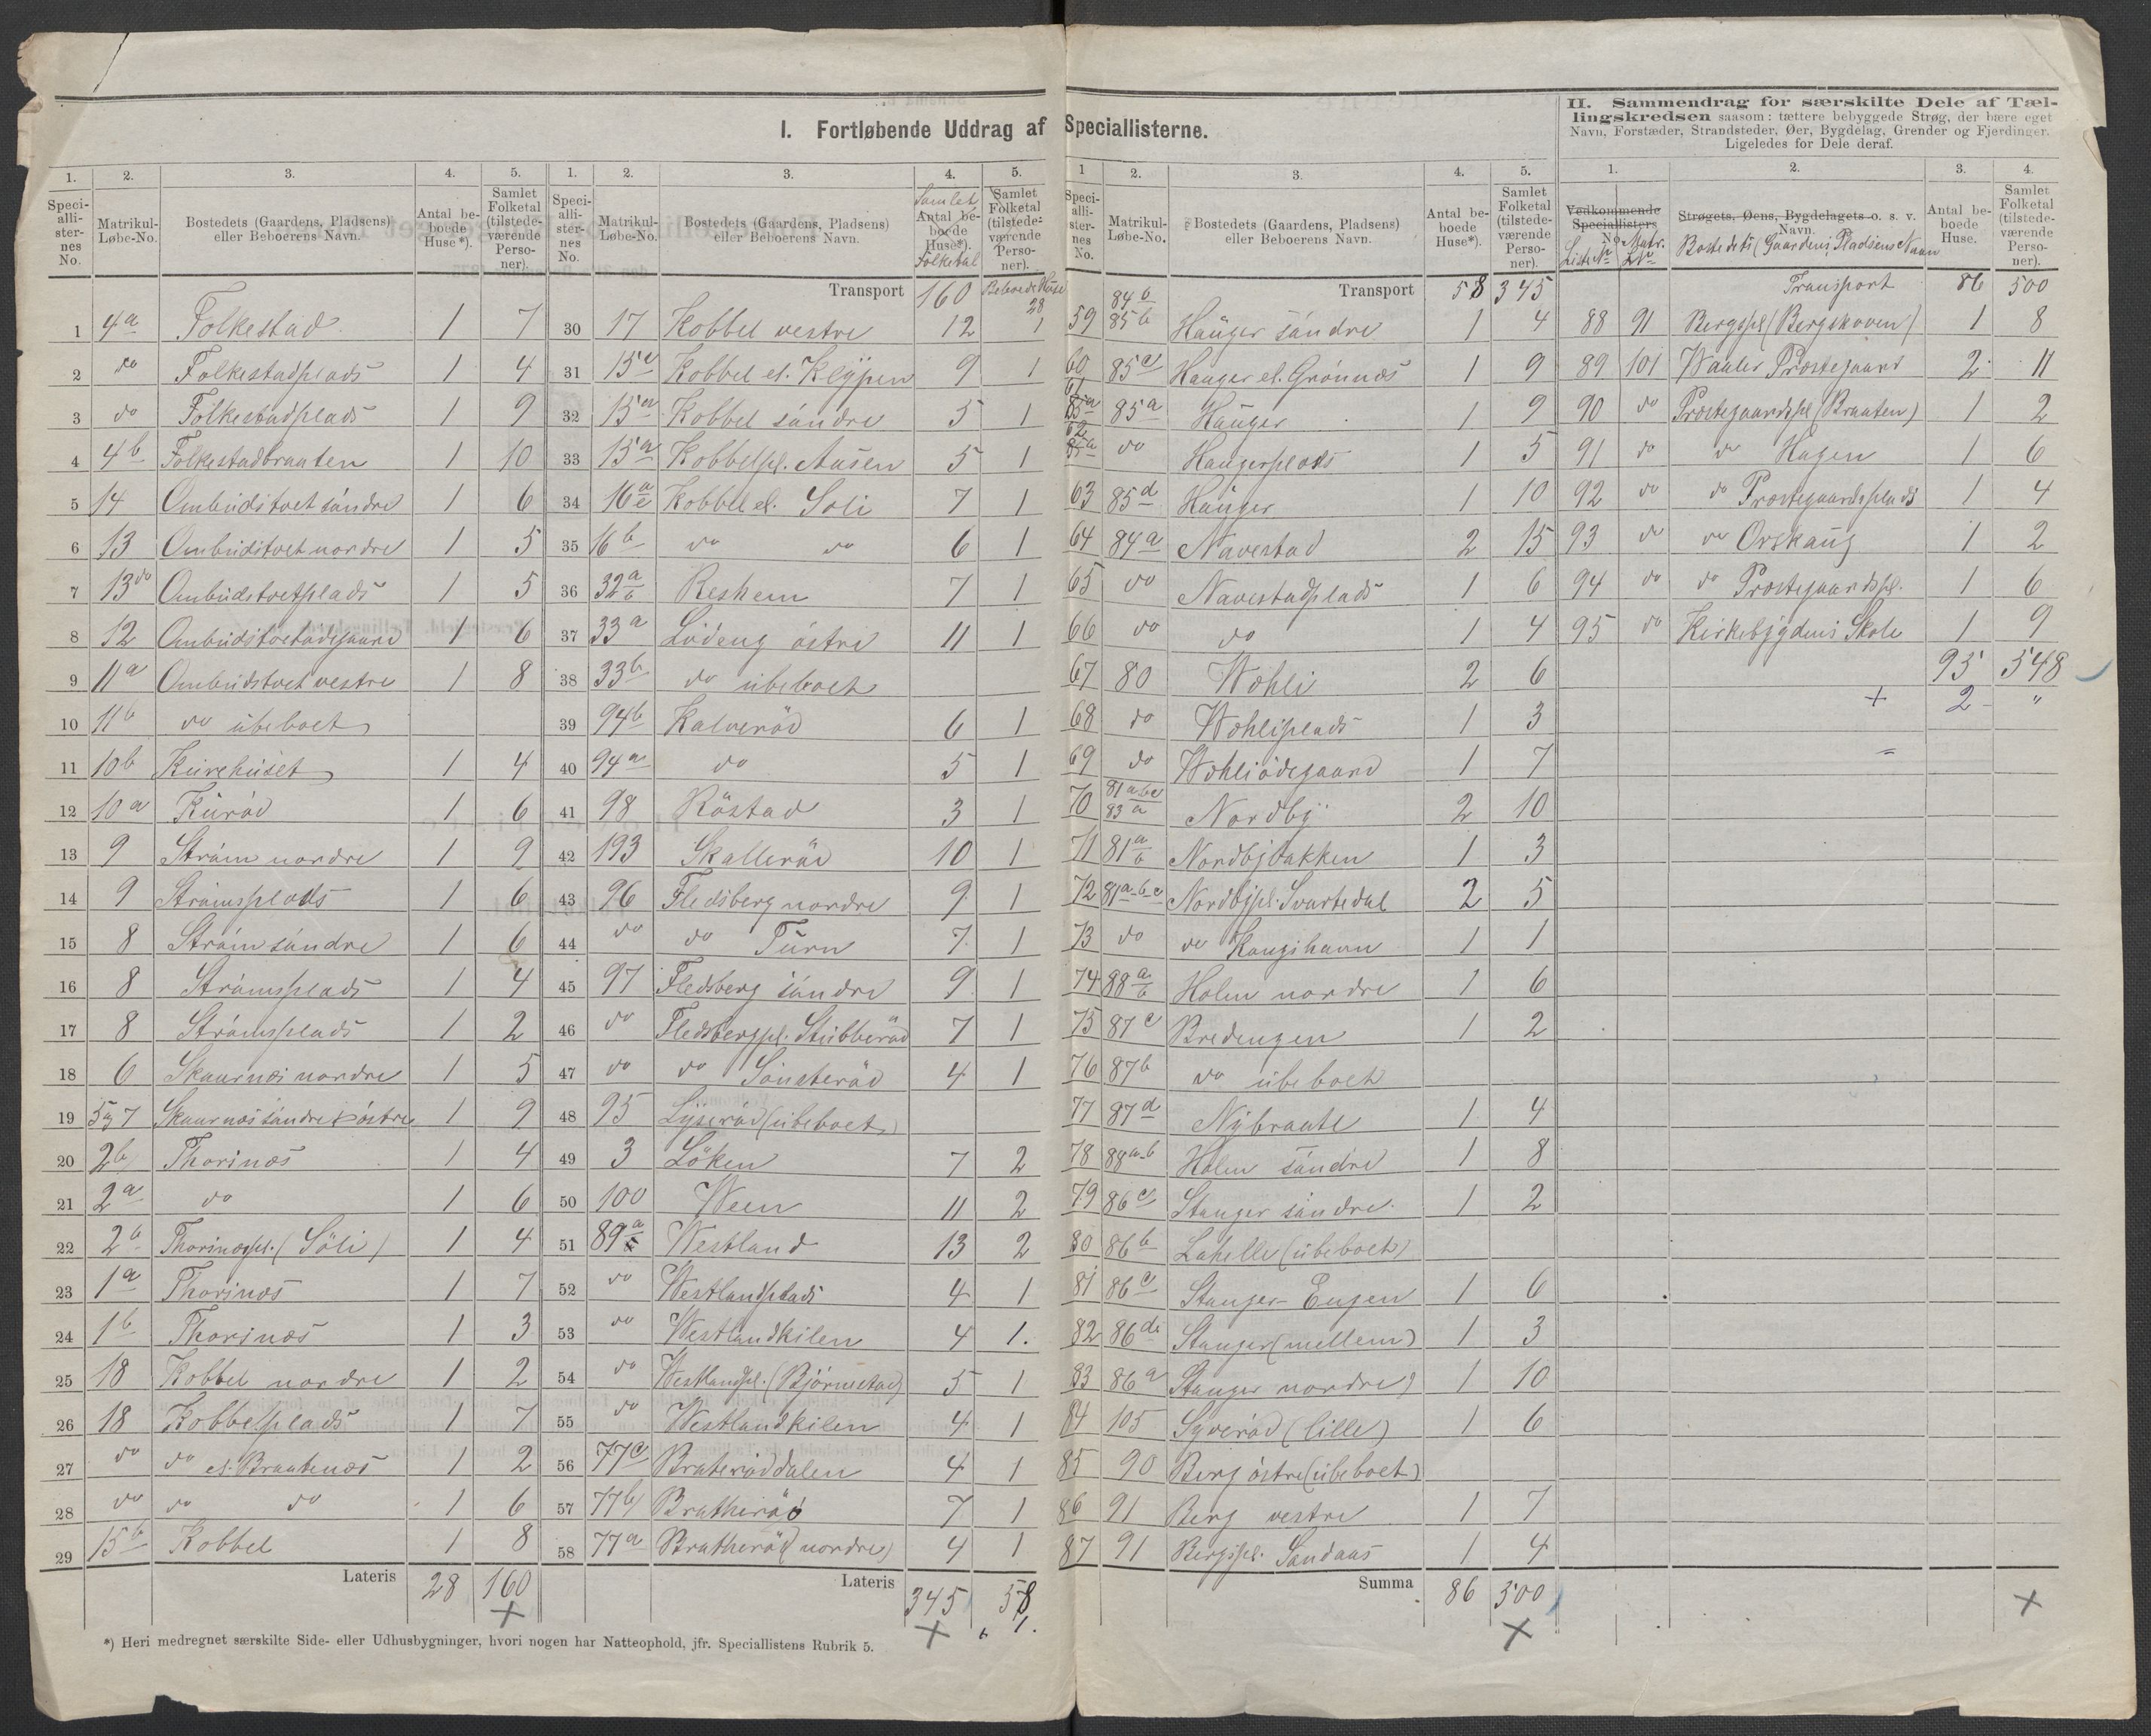 I. Fortløbende Uddrag af Speciallisterne.
II. Sammendrag for særskilte Dele af Tæl-
lingskredsen saasom: tættere bebyggede Strøg, der bære eget
Navn, Forstæder, Strandsteder, Øer, Bygdelag, Grender og Fjerdinger.
Ligeledes for Dele deraf.
1. 2. 3. 4. 5.
Speci-alli-ster-nes No. Matrikul-Løbe-No. Bostedets (Gaardens, Pladsens) eller Beboerens Navn. Antal be-boede Huse*). Samlet Folketal (tilstede-værende Perso-ner).
1 4a Folkestad 1 7
2 do Folkestadplads 1 4
3 do Folkestadplads 1 9
4 4b Folkestadbraaten 1 10
5 14 Ombudstvet söndre 1 6
6 13 Ombudstvet nordre 1 5
7 13 do Ombudstvetplads 1 5
8 12 Ombudstvetödegaard 1 6
9 11a Ombudstvet vestre 1 8
10 11b do ubeboet
11 10b Kurehuset 1 4
12 10a Kuröd 1 6
13 9 Ström nordre 1 9
14 9 Strömsplads 1 6
15 8 Ström söndre 1 6
16 8 Strömsplads 1 4
17 8 Strömsplads 1 2
18 6 Skaarnæs nordre 1 5
19 5 og 7 Skaarnæs söndre & östre 1 9
20 2b Thorsnæs 1 4
21 2a do 1 6
22 2b Thorsnæspl. (Söli) 1 4
23 1a Thorsnæs 1 7
24 1b Thorsnæs 1 3
25 18 Kobbel nordre 1 2
26 18 Kobbelplads 1 7
27 do do el. Braatenæs 1 2
28 do do do 1 6
29 15b Kobbel 1 8
Lateris 28 160
*) Heri medregnet særskilte Side- eller Udhusbygninger, hvori nogen har Natteophold, jfr. Speciallistens Rubrik 5.
1. 2. 3. 4. 5.
Speci-alli-ster-nes No. Matrikul-Løbe-No. Bostedets (Gaardens, Pladsens) eller Beboerens Navn. Samlet Antal be-boede Huse*). Folketal Samlet Folketal (tilstede-værende Perso-ner). Beboede Huse
Transport 160 28
30 17 Kobbel vestre 12 1
31 15c Kobbel el. Klypen 9 1
32 15a Kobbel söndre 5 1
33 15a Kobbelpl. Aasen 5 1
34 16a c Kobbel el. Soli 7 1
35 16b do do 6 1
36 32a b Reshem 7 1
37 33a Lödeng östre 11 1
38 33b do ubeboet
39 94b Kalveröd 6 1
40 94a do 5 1
41 98 Röstad 3 1
42 193 Skalleröd 10 1
43 96 Fledsberg nordre 9 1
44 do do Turn 7 1
45 97 Fledsberg söndre 9 1
46 do Fledsbergpl. Stubberöd 7 1
47 do do Sönsteröd 4 1
48 95 Lyseröd (ubeboet)
49 3 Löken 7 2
50 100 Ween 11 2
51 89a Westland 13 2
52 do Westlandplads 4 1
53 do Westlandkilen 4 1.
54 do Westlandpl. (Björnestad) 5 1
55 do Westlandkilen 4 1
56 77c Bratеröddalen 4 1
57 77b Bratheröd 7 1
58 77a Bratheröd nordre 4 1
Lateris 345 58
1.
1 2. 3. 4. 5.
Speci-alli-ster-nes No. Matrikul-Løbe-No. Bostedets (Gaardens, Pladsens) eller Beboerens Navn. Antal be-boede Huse*). Samlet Folketal (tilstede-værende Perso-ner).
Transport 58 345
59 84b 85b Hauger söndre 1 4
60 85c Hauger el. Grönnæs 1 9
61 85a Hauger 1 9
62 do Haugerplads 1 5
63 85d Hauger 1 10
64 84a Navestad 2 15
65 do Navestadplads 1 6
66 do do 1 4
67 80 Wohli 2 6
68 do Wohliplads 1 3
69 do Wohliödegaard 1 7
70 81abc 83a Nordby 2 10
71 81a b Nordbybakken 1 3
72 81a-b-c Nordbypl. Svartedal 2 5
73 do do Haugshavn 1 1
74 88a b Holm nordre 1 6
75 87c Bredengen 1 2
76 87b do ubeboet
77 87d Nybraate 1 4
78 88a-b Holm söndre 1 8
79 86c Stanger söndre 1 2
80 86b Lahelle (ubeboet)
81 86c Stanger Engen 1 6
82 86d Stanger (mellem) 1 3
83 86a Stanger nordre 1 10
84 105 Syveröd (lille) 1 6
85 90 Berg östre (ubeboet)
86 91 Berg vestre 1 7
87 91 Bergspl. Sandaas 1 4
Summa 86 500
1. 2. 3. 4.
Vedkommende Speciallisters No. Liste No Matr. L No Strøgets, Øens, Bygdelagets o. s. v. Navn. Bostedets (Gaardens, Pladsens Navn Antal be-boede Huse. Samlet Folketal (tilstede-værende Perso-ner).
Transport 86 500
88 91 Bergspl (Bergskoven) 1 8
89 101 Waaler Præstegaard 2 11
90 do Præstegaardspl (Braaten) 1 2
91 do do Hagen 1 6
92 do do Præstegaardsplads 1 4
93 do do Orskaug 1 2
94 do do Præstegaardspl. 1 6
95 do Kirkebygdens Skole 1 9
95 548
+ 2 "